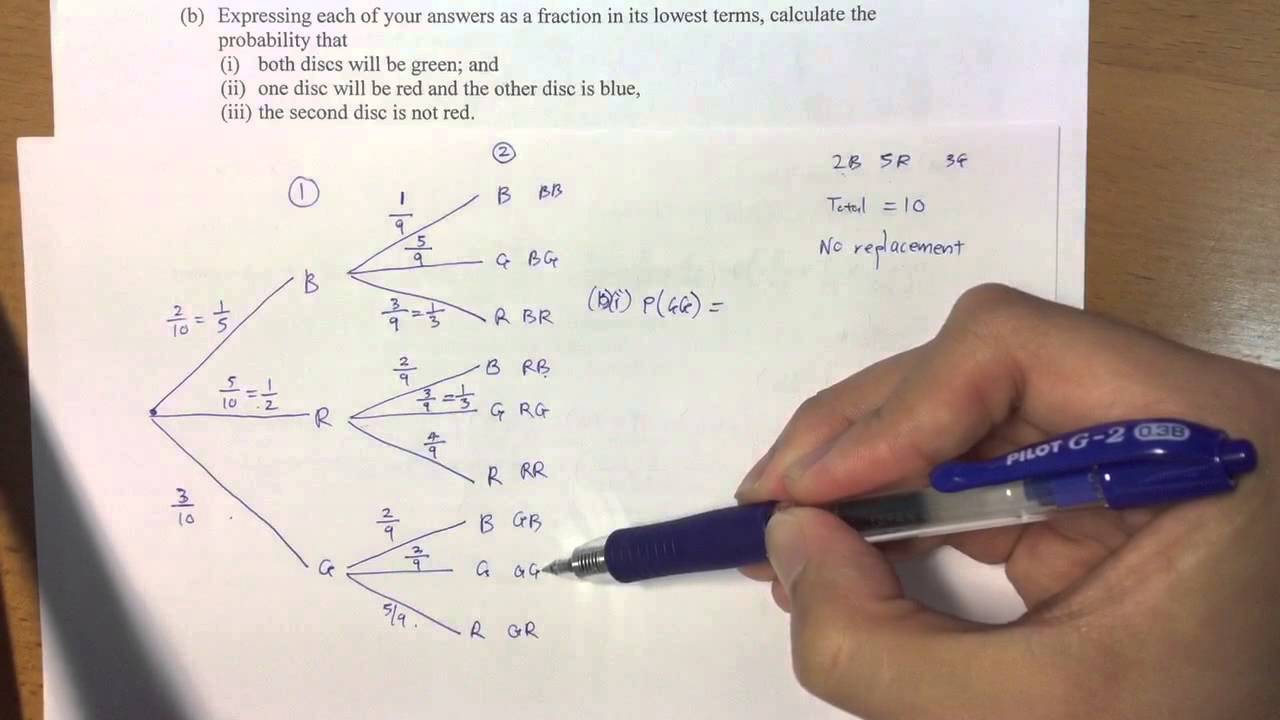 (b) Expressing each of your answers as a fraction in its lowest terms, calculate the
probability that
(i) both discs will be green; and
(ii) one disc will be red and the other disc is blue,
(iii) the second disc is not red.
① ②
2B 5R 3G
Total = 10
No replacement
1/9 B BB
5/9 G BG
2/10 = 1/5 B
3/9 = 1/3 R BR
(b)(i) P(GG) =
2/9 B RB
5/10 = 1/2 R
3/9 = 1/3 G RG
4/9 R RR
3/10 G
2/9 B GB
2/9 G GG
5/9 R GR
PILOT G-2 0.38